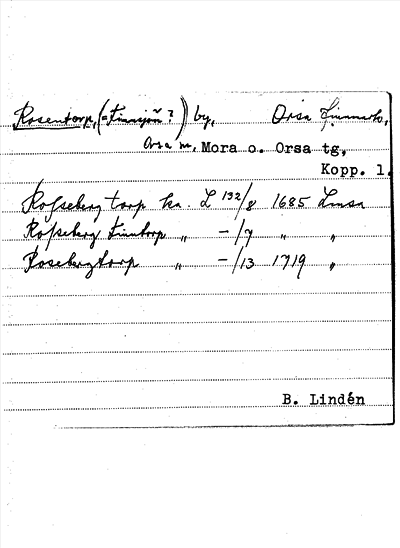 Rosentorp, (= Finnsjön?) by, Orsa Finnmark,
Orsa sn, Mora o. Orsa tg,
Kopp. l.
Rosseberg torp ka. L 132/8 1685 Lmsa
Rosseberg Finntorp " -/7 " "
Rosebergtorp " -/13 1719 "
B. Lindén